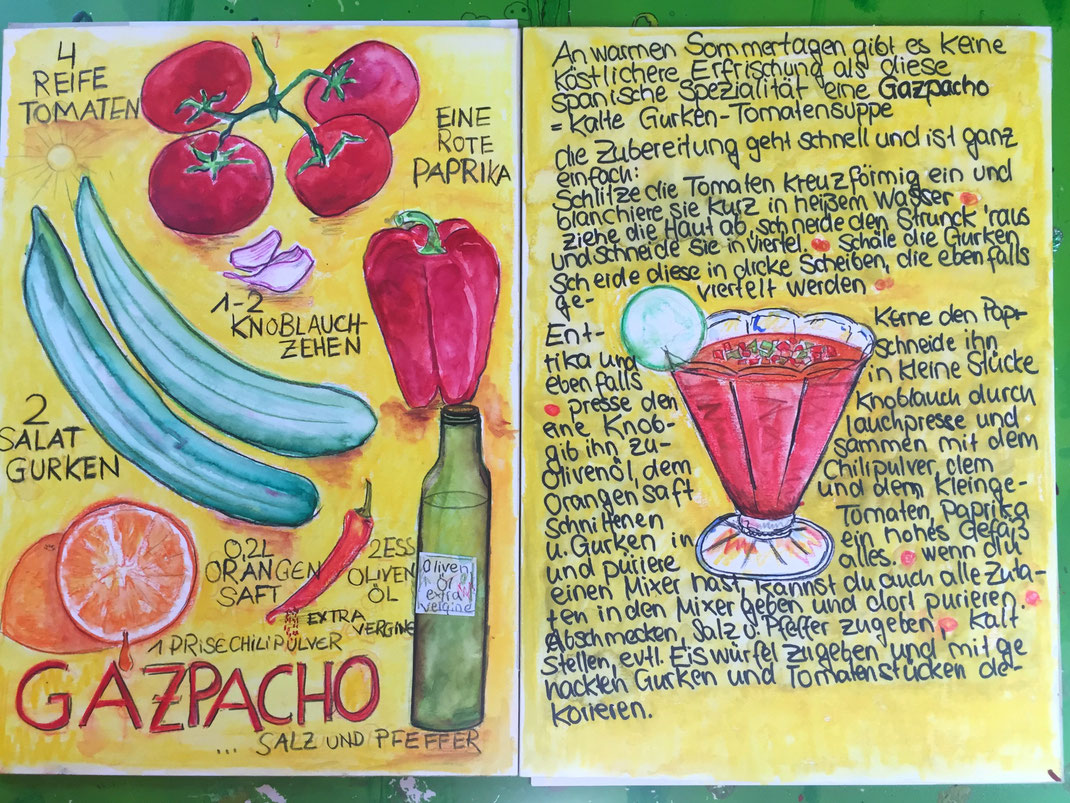 4
REIFE
TOMATEN
EINE
ROTE
PAPRIKA
1-2
KNOBLAUCH-
ZEHEN
2
SALAT
GURKEN
0,2L
ORANGEN
SAFT
2 ESS
OLIVEN
ÖL
EXTRA
VERGINE
Oliven
öl
extra
vergine
1 PRISE CHILIPULVER
GAZPACHO
... SALZ UND PFEFFER
An warmen Sommertagen gibt es keine
köstlichere Erfrischung als diese
spanische Spezialität eine Gazpacho
= Kalte Gurken-Tomatensuppe
die Zubereitung geht schnell und ist ganz
einfach:
Schlitze die Tomaten kreuzförmig ein und
blanchiere sie kurz in heißem Wasser
ziehe die Haut ab, schneide den Strunck 'raus
und schneide sie in viertel. Schäle die Gurken
Scheide diese in dicke Scheiben, die ebenfalls
ge- viertelt werden
Ent- Kerne den Pap-
rika und schneide ihn
ebenfalls in kleine Stücke
presse den Knoblauch durch
eine Knob- lauchpresse und
gib ihn zu- sammen mit dem
Olivenöl, dem Chilipulver, dem
Orangensaft und dem Kleinge-
schnittenen Tomaten, Paprika
u. Gurken in ein hohes Gefäß
und püriere alles. wenn du
einen Mixer hast, kannst du auch alle Zuta-
ten in den Mixer geben und dort pürieren.
Abschmecken, Salz u. Pfeffer zugeben, Kalt
Stellen, evtl. Eiswürfel zugeben und mit ge
hackten Gurken und Tomatenstücken de-
korieren.